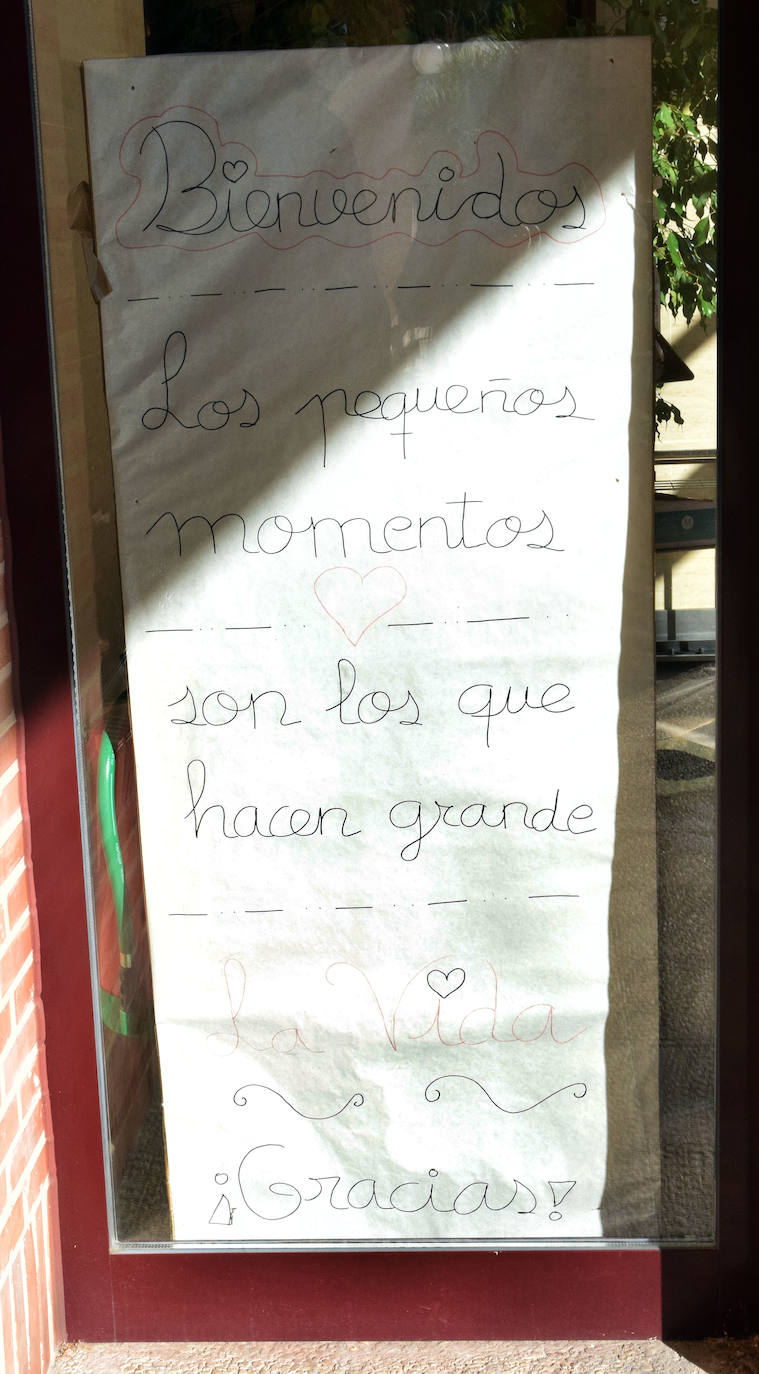 Bienvenidos
Los pequeños
momentos
son los que
hacen grande
La Vida
¡Gracias!